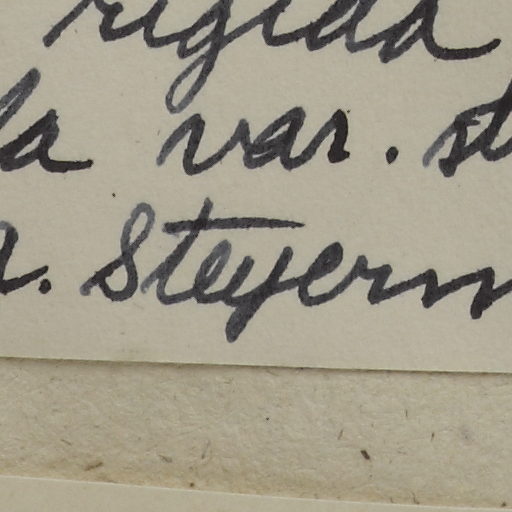 rigida
la var. st
. Steyerm